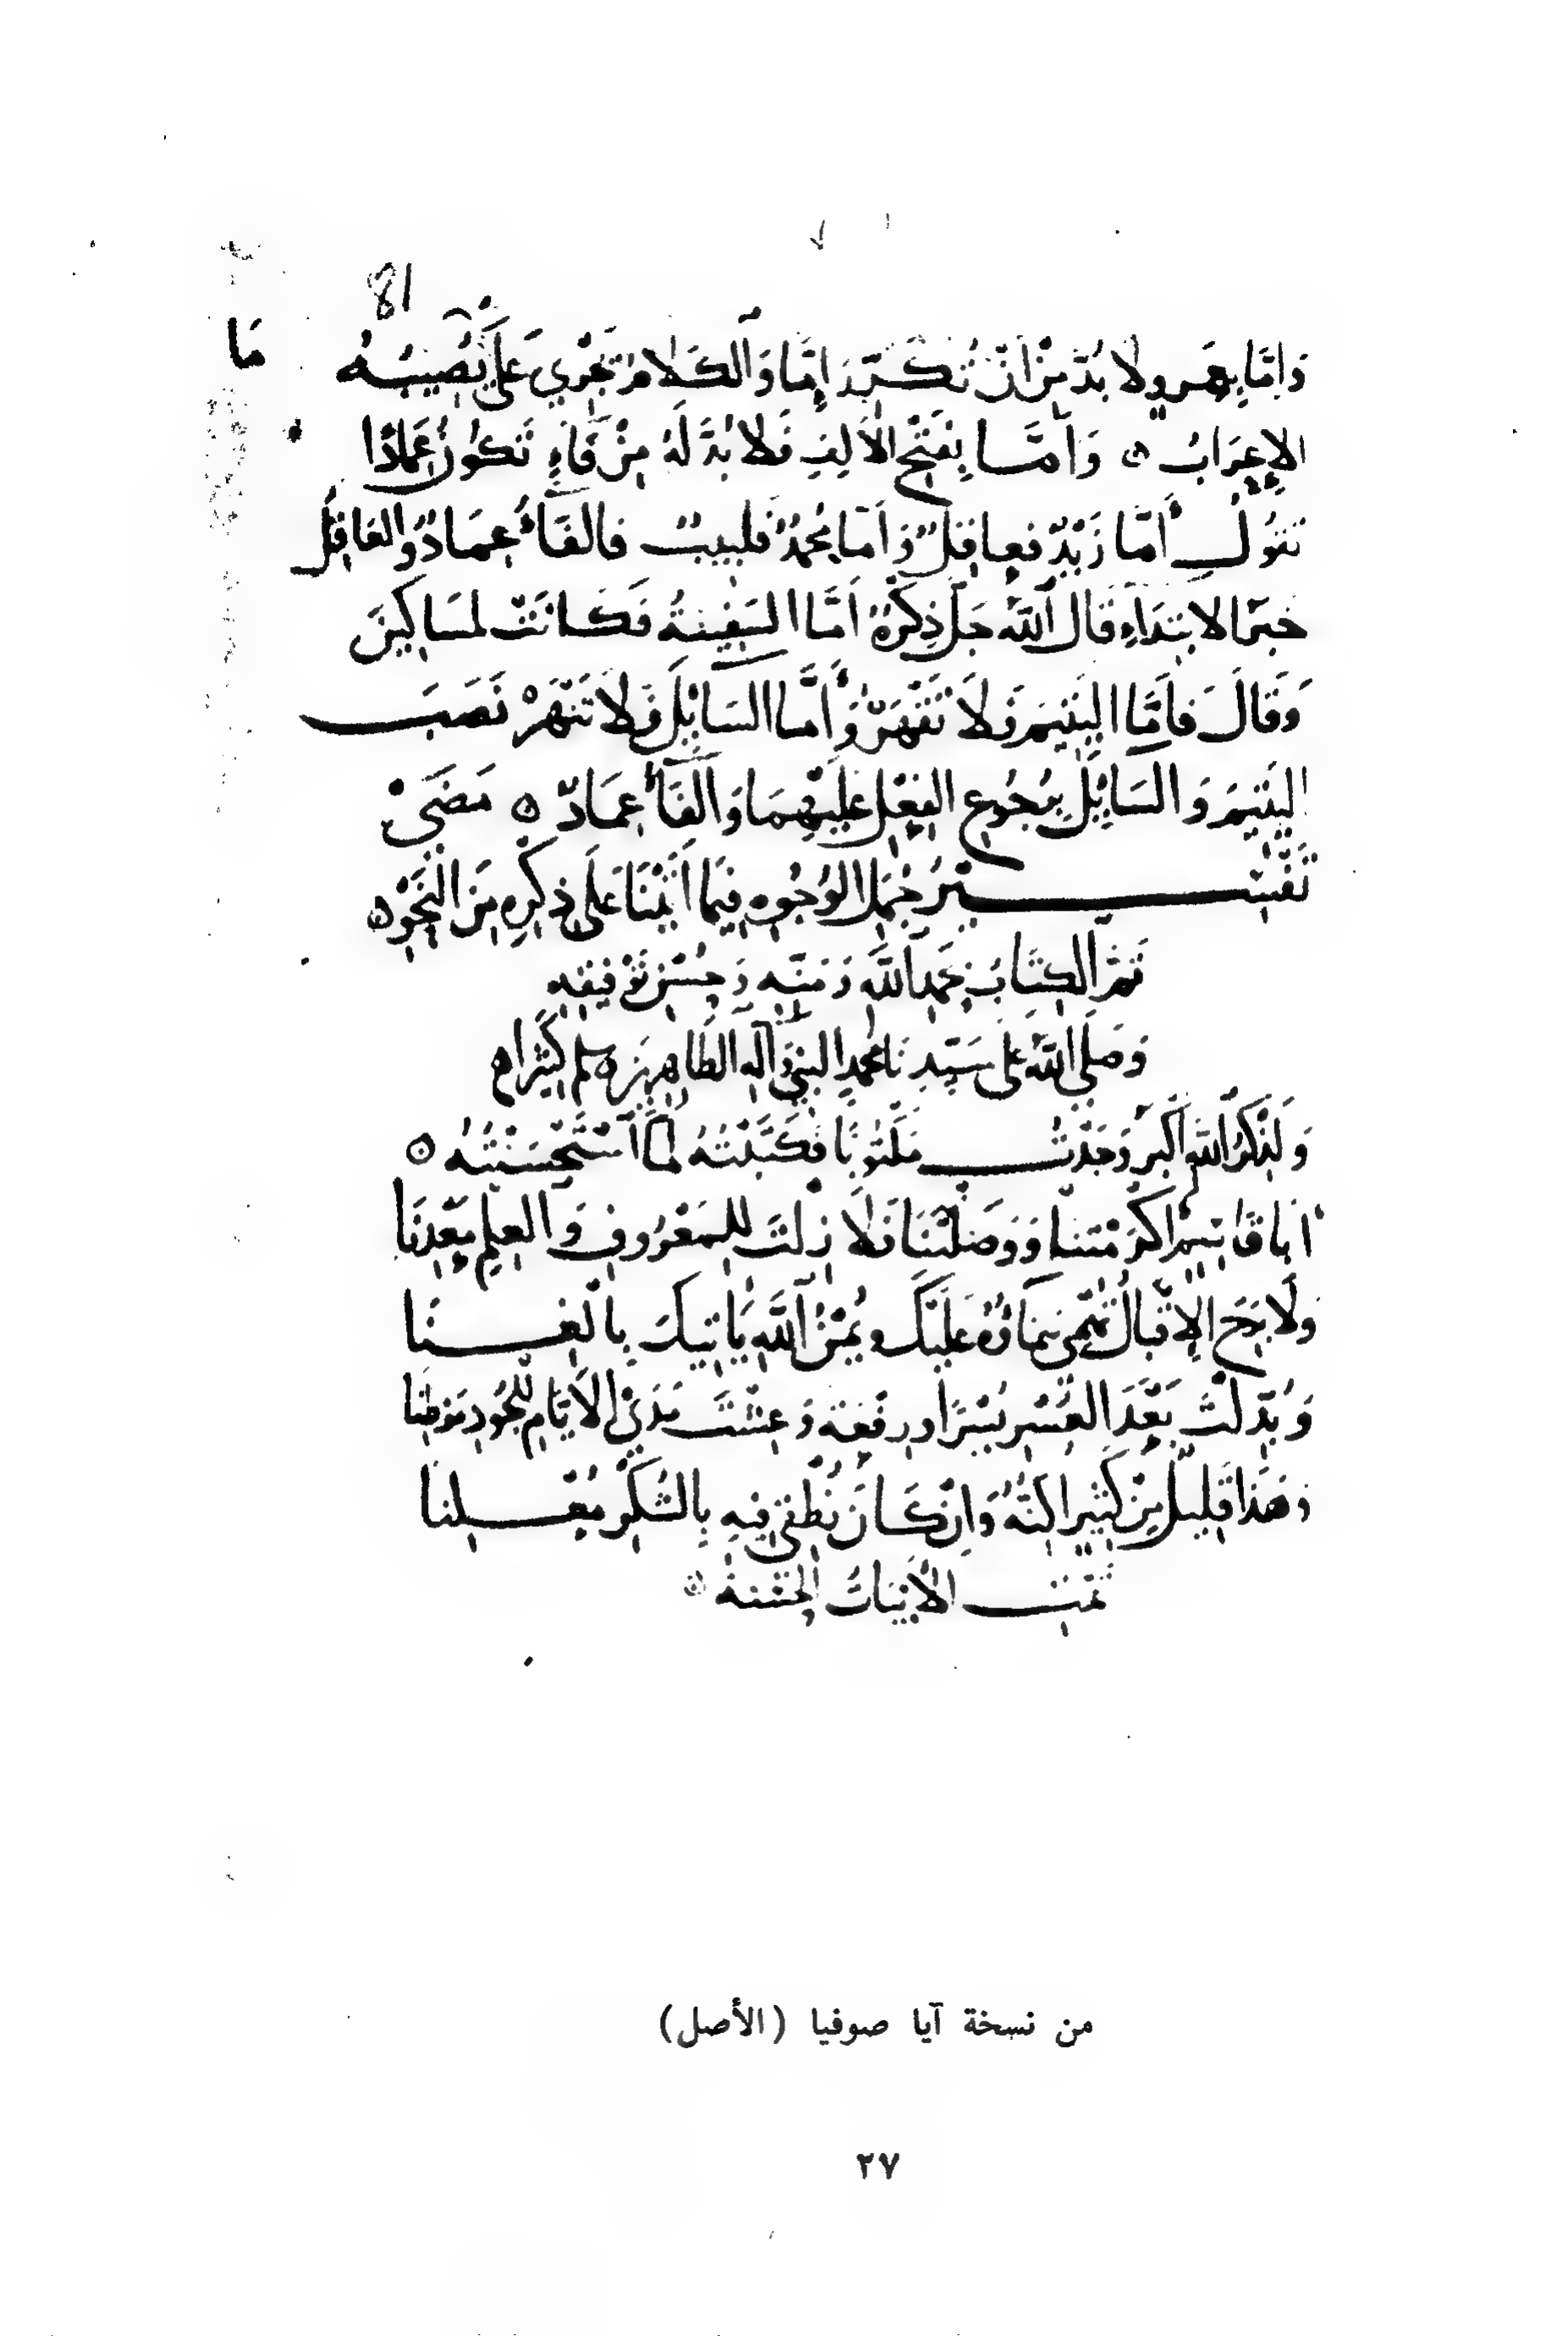 81
وَاِمَّا بِعَمرٍو لَا بُدَّ مِنْ اَنْ تُكَرِّرَ اِمَّا وَالْكَلَامُ تَجْرِي عَلَى مَا يُصِيبُهُ
الاِعِرَابُ ۞ وَاَمَّا بِفَتْحِ الْاَلِفِ فَلَا بُدَّ لَهُ مِنْ فَاءٍ تَكُونُ عِمَادًا
تقُولُ أَمّا زَيْدٌ فعاقِلٌ وَاَمّا مُحمدٌ فلبيبٌ فالفَاءُ عِمَادٌ وَالعَاقِلُ
خبَرُ الابتدَاءِ قَالَ اللّٰهُ جَلّ ذِكْرُهُ اَمَّا السَفِينةُ فَكَانَتْ لمسَاكِينَ
وَقَالَ فَاَمَّا اليَتيمَ فَلَا تَقْهَرْ وَأَمّا السَايِلَ فَلَا تَنْهَرْ نَصَبَ
اليَتيمَ وَالسَايِلَ برُجُوعِ الفِعْلِ عليهِمَا وَالْفَاءُ عِمَادٌ ۞ مَضَى
تَفْسيرُ جُمَلِ الوُجُوهِ فِيمَا اَتَيْنَا عَلَى ذِكْرِهِ مِنَ النَّحْوِ ۞
تمَّ الكِتَابُ بحَمدِ اللّٰهِ وَمَنِّهِ وَحُسْنِ تَوْفيقِهِ
وَصَلى اللّٰهُ عَلى سَيّدِنَا مُحمدٍ النبيّ وَآلهِ الطَاهِرينَ وَسلم كَثيرًا
وَلَذِكْرُ اللّٰهِ اَكْبَرُ وَجَدْتُ مَكْتُوبًا فكَتَبْتُهُ لَمَّا اسْتَحْسَنْتُهُ ۞
اَيَا قَاسِمٌ اكرَمْتَنا وَوَصَلْتَنَا فَلَا زِلتَ للمَعْرُوفِ وَالعِلمِ مَعْدِنَا
وَلَا بَرِحَ الاِقْبَالُ تَهْمِي سَمَاؤُهُ عَلَيْكَ وَيُمْنُ اللّٰهِ يَاتيكَ بِالْغِنَا
وَبُدِّلتَ بَعْدَ العُسْرِ يُسْرًا وَرِفْعَةً وَعِشْتَ مَدَى الاَيّامِ لِلْجُودِ مَوْطِنا
وَهَذَا قَلِيلٌ مِنْ كَثيرٍ اكنّهُ وَاِنْ كَانَ نُطْقِي فيهِ بِالشُكْرِ مُعْلِنا
تمّت الاَبيَاتُ الحَسَنةُ ۞
من نسخة آيا صوفيا (الأصل)
٢٧